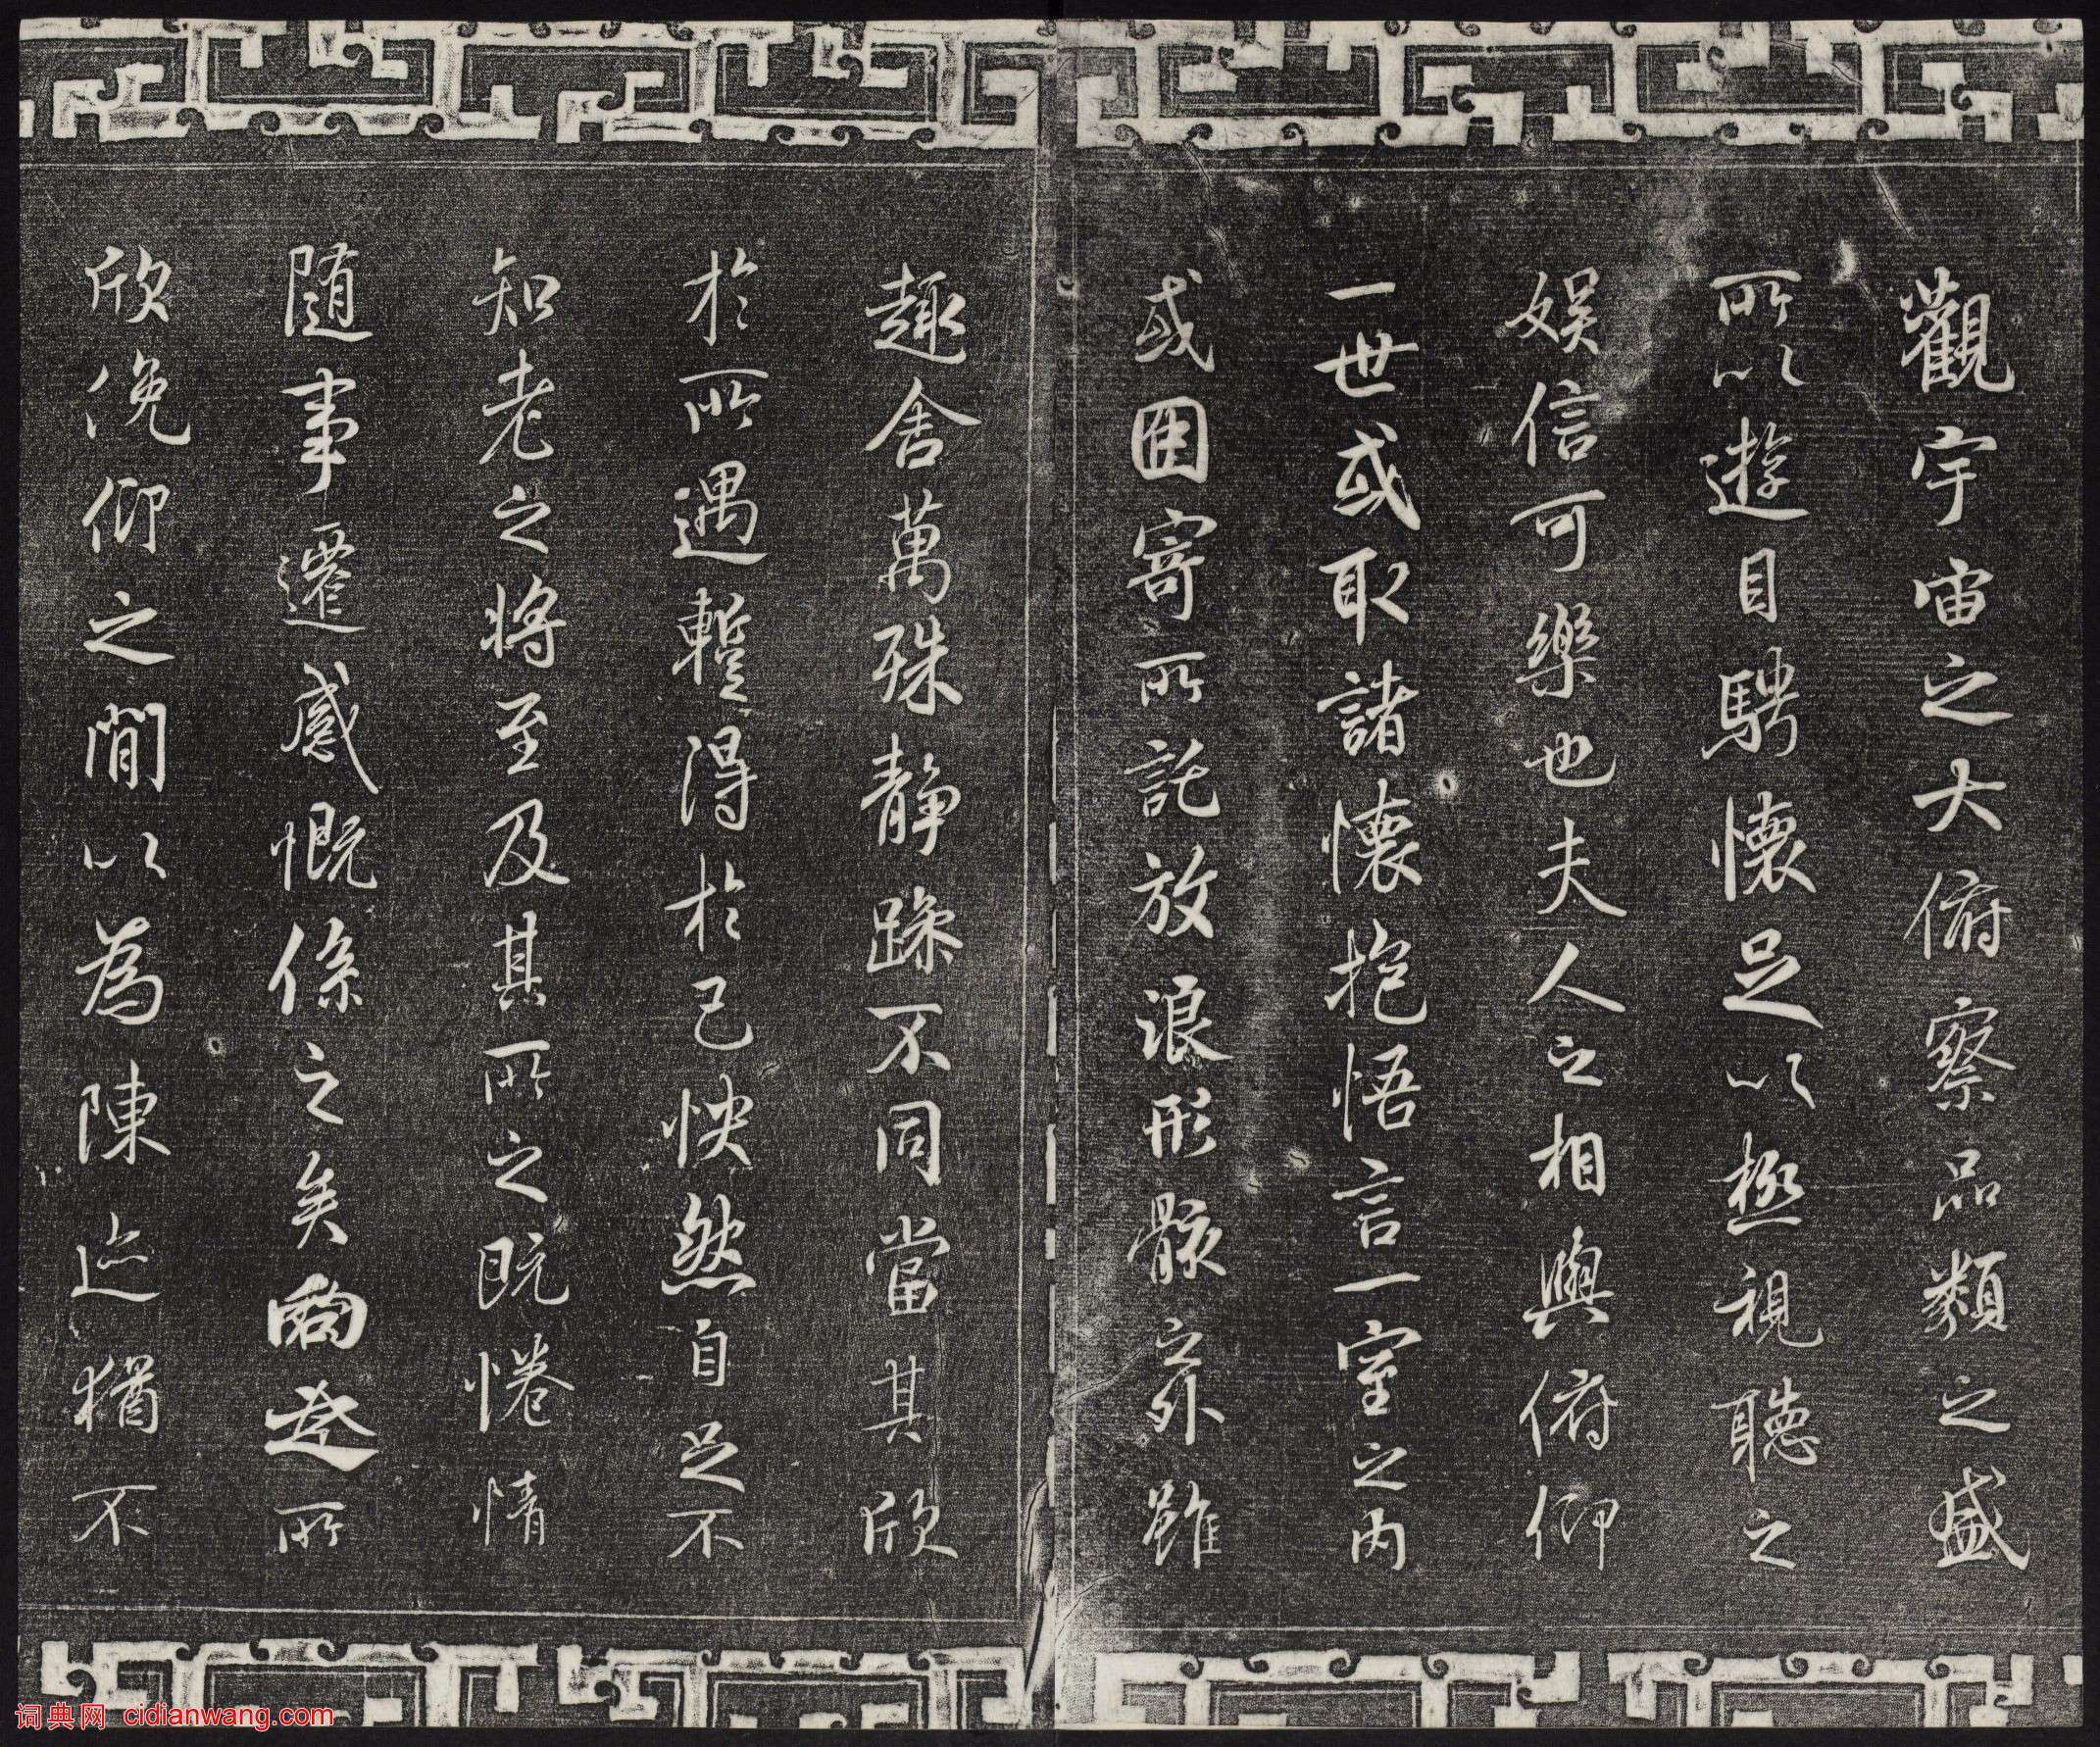 觀宇宙之大俯察品類之盛
所以遊目騁懷足以極視聽之
娛信可樂也夫人之相與俯仰
一世或取諸懷抱悟言一室之內
或因寄所託放浪形骸之外雖
趣舍萬殊靜躁不同當其欣
於所遇暫得於己怏然自足不
知老之將至及其所之既惓情
隨事遷感慨係之矣向之所
欣俛仰之間以為陳迹猶不
词典网 cidianwang.com